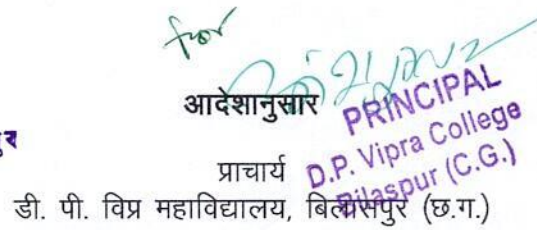 for
आदेशानुसार
PRINCIPAL
प्राचार्य
D.P. Vipra College
Bilaspur (C.G.)
डी. पी. विप्र महाविद्यालय, बिलासपुर (छ.ग.)